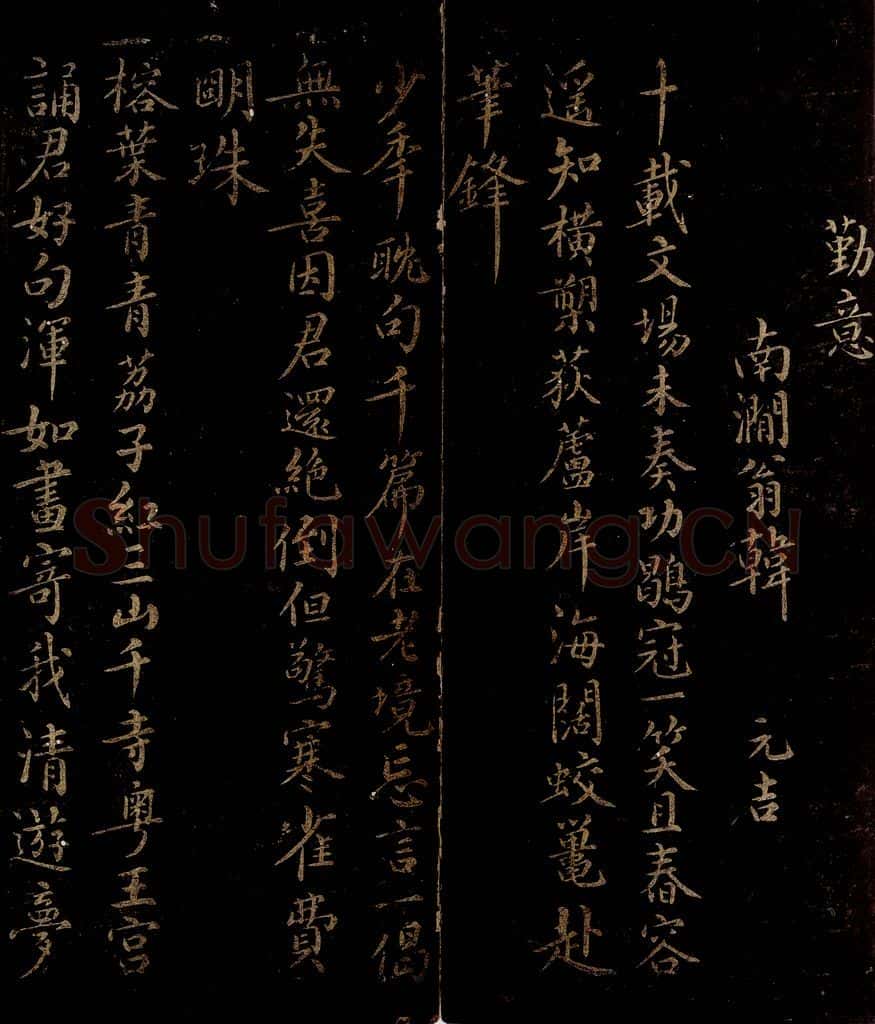 勤意
南澗翁韓 元吉
十載文場未奏功鶡冠一笑且舂容
遥知橫槊荻蘆岸海闊蛟鼉赴
筆鋒
少年耽句千篇在老境忘言一偈
無失喜因君還絶倒但驚寒雀費
明珠
榕葉青青荔子紅三山千寺粤王宫
誦君好句渾如畫寄我清遊夢
Shufawang.CN